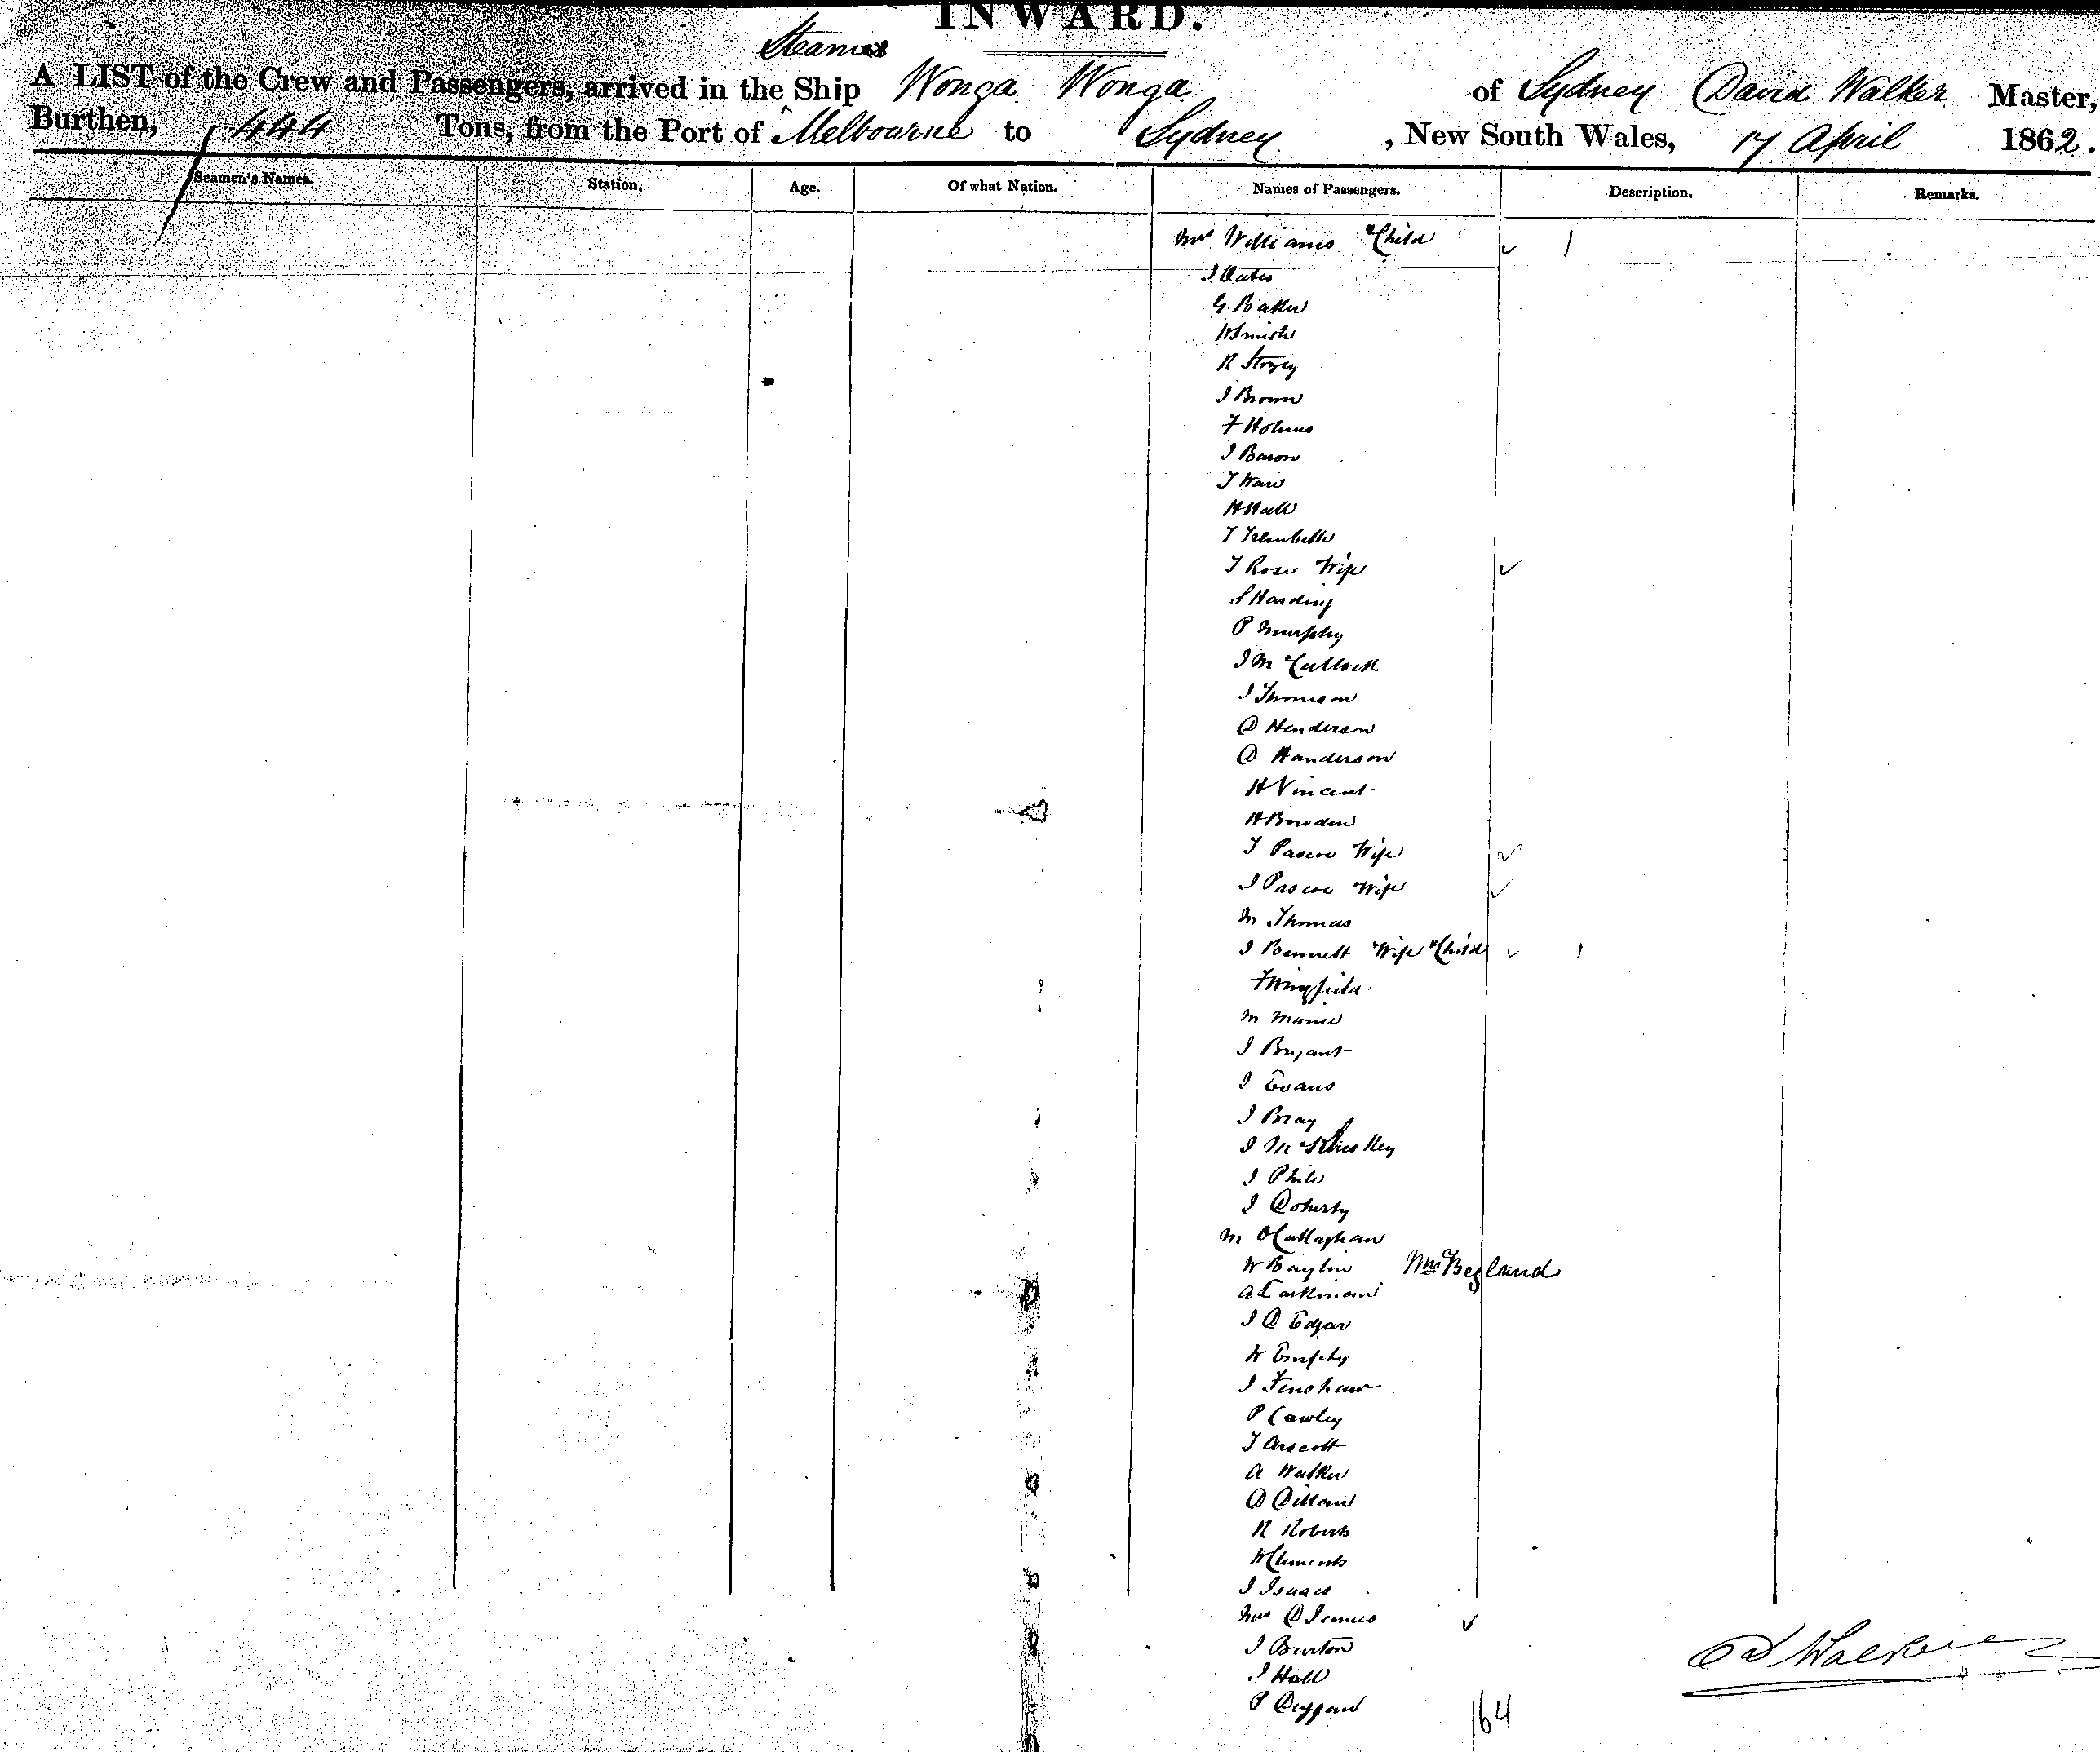 INWARD.
Steamer
A LIST of the Crew and Passengers, arrived in the Ship Wonga Wonga of Sydney David Walker Master,
Burthen, 444 Tons, from the Port of Melbourne to Sydney, New South Wales, 17 April 1862.
Seamen's Names. Station. Age. Of what Nation. Names of Passengers. Description. Remarks.
Mrs Williams Child 1
J Oates
G Baker
H Smith
R Storey
J Brown
F Holmes
J Baron
T Ware
H Hall
T
T Rose Wife
S Harding
P Murphy
J McCullock
J Thomson
D Henderson
D Handerson
H Vincent
H Bowden
T Pascoe Wife
J Pascoe Wife
M Thomas
J Bennett Wife Child 1
F Wingfield
M
J Bryant
J Evans
J Bray
J
J
J Doherty
M OCallaghan
W Mrs Begland
A
J D Edgar
W
J Fenshaw
P Cawley
T Arscott
A Walker
D Dillan
R Roberts
W Clements
J Isaacs
Mrs
J Burton
J Hall
P
164
D Walker